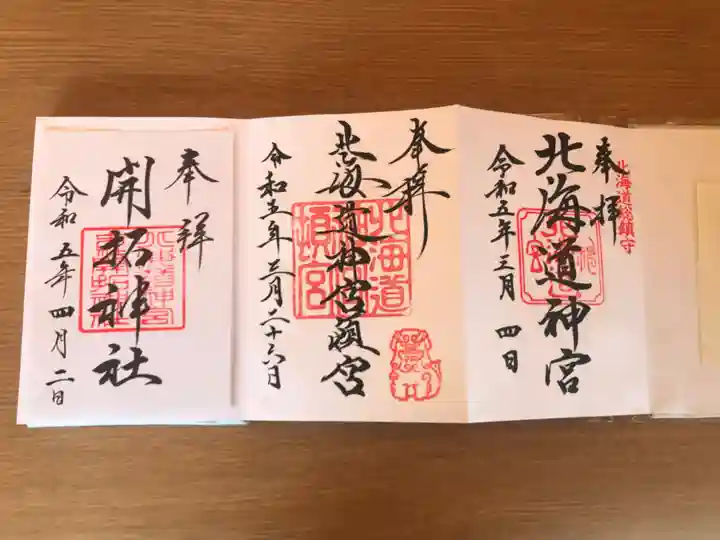 奉拝
北海道総鎮守
北海道神宮
令和五年三月四日
奉拝
北海道神宮頓宮
令和五年三月二十六日
北海道
頓宮
奉拝
開拓神社
令和五年四月二日